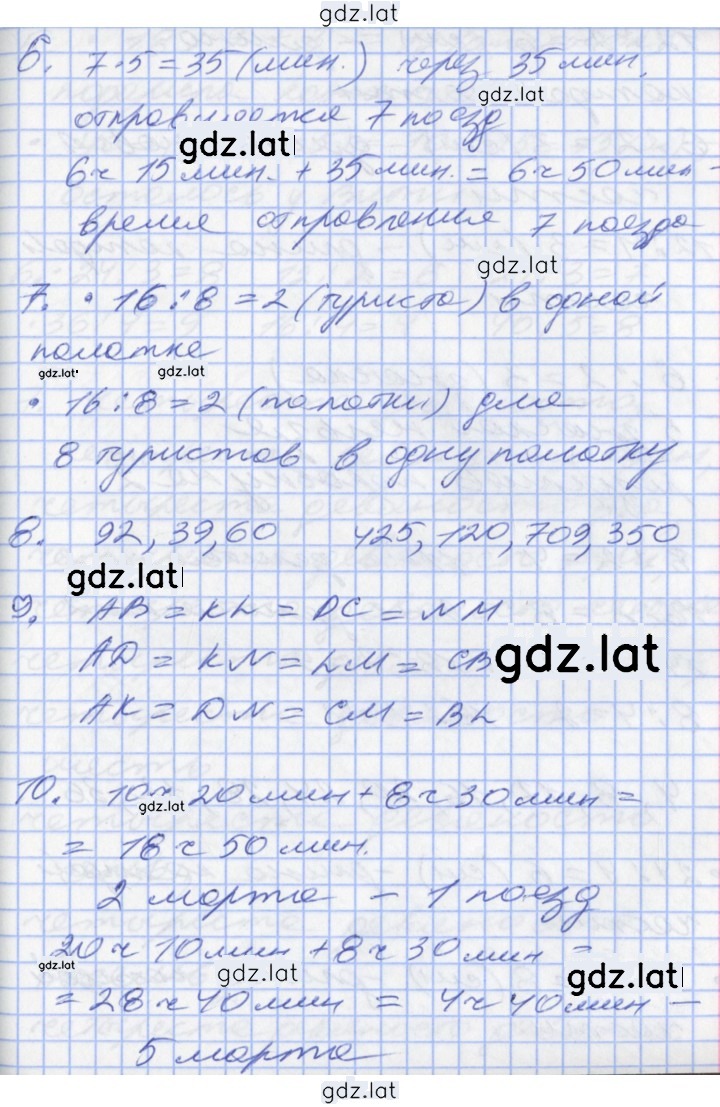 gdz.lat
6. 7·5=35 (мин.) через 35 мин.
gdz.lat
отправляется 7 поезд
gdz.lat
6 ч 15 мин. + 35 мин. = 6 ч 50 мин -
время отправления 7 поезда
gdz.lat
7. • 16:8=2 (туриста) в одной
палатке
gdz.lat gdz.lat
• 16:8=2 (палатки) для
8 туристов в одну палатку
8. 92, 39, 60 425, 120, 709, 350
gdz.lat
9. AB = KL = DC = NM
AD = KN = LM = CB
gdz.lat
AK = DN = CM = BL
10. 10 ч 20 мин + 8 ч 30 мин =
gdz.lat
= 18 ч 50 мин.
2 марта – 1 поезд
20 ч 10 мин + 8 ч 30 мин =
gdz.lat gdz.lat gdz.lat
= 28 ч 40 мин = 4 ч 40 мин –
5 марта
gdz.lat